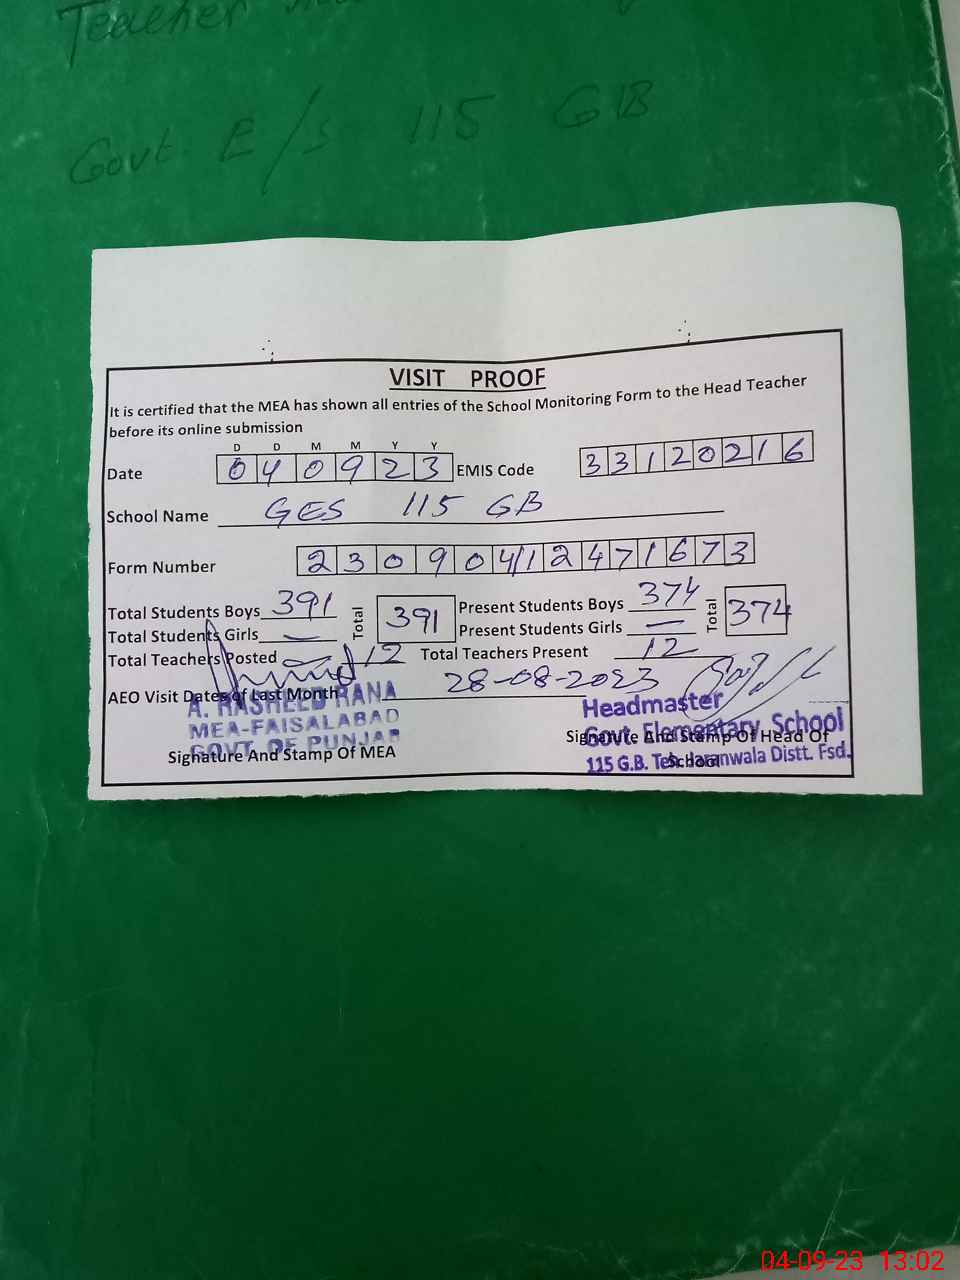 Teacher
Govt. E/S 115 GB
VISIT PROOF
It is certified that the MEA has shown all entries of the School Monitoring Form to the Head Teacher
before its online submission
D D M M Y Y
Date 0 4 0 9 2 3 EMIS Code 3 3 1 2 0 2 1 6
School Name GES 115 GB
Form Number 2 3 0 9 0 4/1 2 4 7 1 6 7 3
Total Students Boys 391 Total 391 Present Students Boys 374 Total 374
Total Students Girls — Present Students Girls —
Total Teachers Posted 12 Total Teachers Present 12
AEO Visit Dates of Last Month 28-08-2023
A. RASHEED RANA
MEA-FAISALABAD
GOVT. OF PUNJAB
Signature And Stamp Of MEA
Headmaster
Govt. Elementary School
115 G.B. Teh. Jaranwala Distt. Fsd.
Signature And Stamp Of Head Of
School
04-09-23 13:02